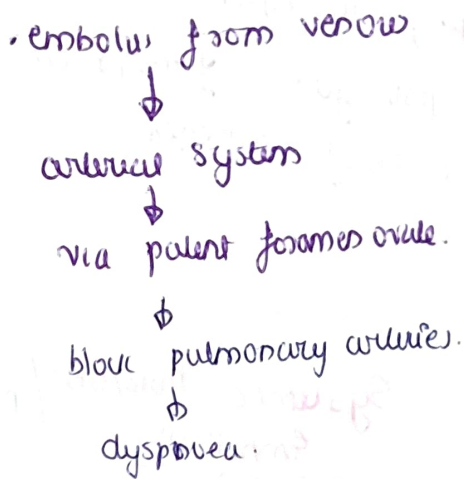 . embolus from venous
↓
arterial system
↓
via patent foramen ovale.
↓
block pulmonary arteries.
↓
dyspnoea.